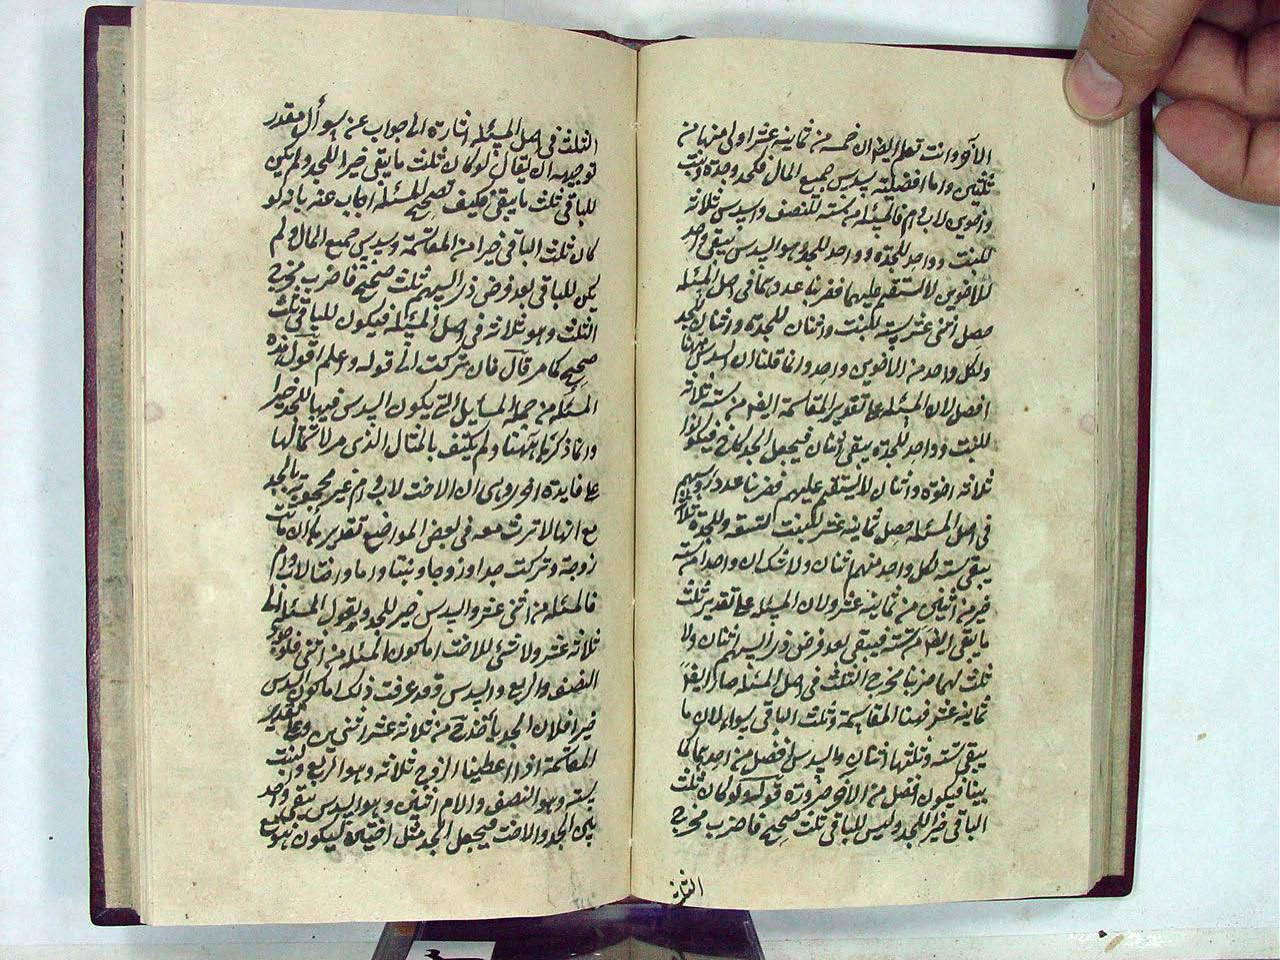 الآخر وانت تعلم ايضا ان خمسة من ثمانية عشر اولى منها من
ثلثين واما افضلية سدس جميع المال فكجد وجدة وبنت
واخوين لاب وام فالمسئلة من ستة للنصف والسدس ثلاثة
للبنت وواحد للجدة وواحد للجد وهو السدس يبقى واحد
للاخوين لا يستقيم عليهما فضربنا عددهما في اصل المسئلة
حصل اثنى عشر ستة للبنت واثنان للجدة واثنان للجد
ولكل واحد من الاخوين واحد وانما قلنا ان السدس ههنا
افضل لان المسئلة على تقدير المقاسمة ايضا من ستة ثلاثة
للبنت وواحد للجدة يبقى اثنان فيجعل الجد كاخ فيكونوا
ثلاثة اخوة واثنان لا يستقيم عليهم فضربنا عدد رؤسهم
في اصل المسئلة حصل ثمانية عشر للبنت تسعة وللجدة ثلاثة
يبقى ستة لكل واحد منهم اثنان ولا شك ان واحدا من ستة
خير من اثنين من ثمانية عشر ولان المسئلة على تقدير ثلث
ما يبقى ايضا من ستة فيبقى بعد فرض ذوى السهم اثنان ولا
ثلث لهما ضربنا مخرج الثلث في اصل المسئلة صار ايضا
ثمانية عشر فهنا المقاسمة وثلث الباقى سواء لان ما
يبقى ستة وثلثها اثنان والسدس افضل من احدهما كما
بينا فيكون افضل من الآخر ضرورة قوله ولو كان ثلث
الباقى خيرا للجد وليس للباقى ثلث صحيح فاضرب مخرج
الثلث
الثلث في اصل المسئلة اشارة الى جواب عن سؤال مقدر
توجيهه ان يقال لو كان ثلث ما يبقى خيرا للجد ولم يكن
للباقى ثلث ما يبقى فكيف تصحيح المسئلة اجاب عنه بانه لو
كان ثلث الباقى خيرا من المقاسمة وسدس جميع المال ولم
يكن للباقى بعد فرض ذوى السهم ثلث صحيح فاضرب مخرج
الثلث وهو ثلاثة في اصل المسئلة فيكون للباقى ثلث
صحيح كما مر قال فان تركت الى قوله واعلم اقول هذه
المسئلة من جملة المسايل التى يكون السدس فيها للجد خيرا
وانما ذكرنا ههنا ولم يكتف بالمثال الذى مر لاشتمالها
على فايدة اخرى وهى ان الاخت لاب وام غير محجوبة بالجد
مع انها لا ترث معه في بعض المواضع تقديره ان ماتت
زوجة وتركت جدا وزوجا وبنتا واما واختا لاب وام
فالمسئلة من اثنى عشر والسدس خير للجد وتعول المسئلة الى
ثلاثة عشر ولا شئ للاخت اما كون المسئلة من اثنى عشر فلوجود
النصف والربع والسدس وقد عرفت ذلك اما كون السدس
خيرا فلان الجد يأخذ من ثلاثة عشر اثنين وعلى تقدير
المقاسمة اذا اعطينا الزوج ثلاثة وهو الربع والبنت
ستة وهو النصف والام اثنين وهو السدس يبقى واحد
بين الجد والاخت فيجعل الجد مثل اختين ليكون